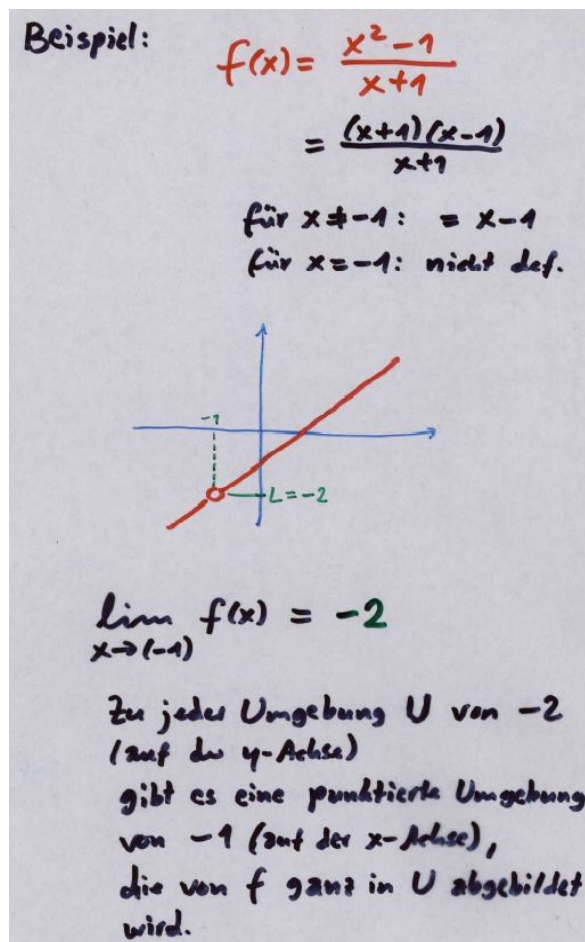 Beispiel:
f(x) = \frac{x^2 - 1}{x + 1}
= \frac{(x+1)(x-1)}{x+1}
für x ≠ -1: = x - 1
für x = -1: nicht def.
-1
L = -2
lim f(x) = -2
x → (-1)
Zu jeder Umgebung U von -2
(auf der y-Achse)
gibt es eine punktierte Umgebung
von -1 (auf der x-Achse),
die von f ganz in U abgebildet
wird.